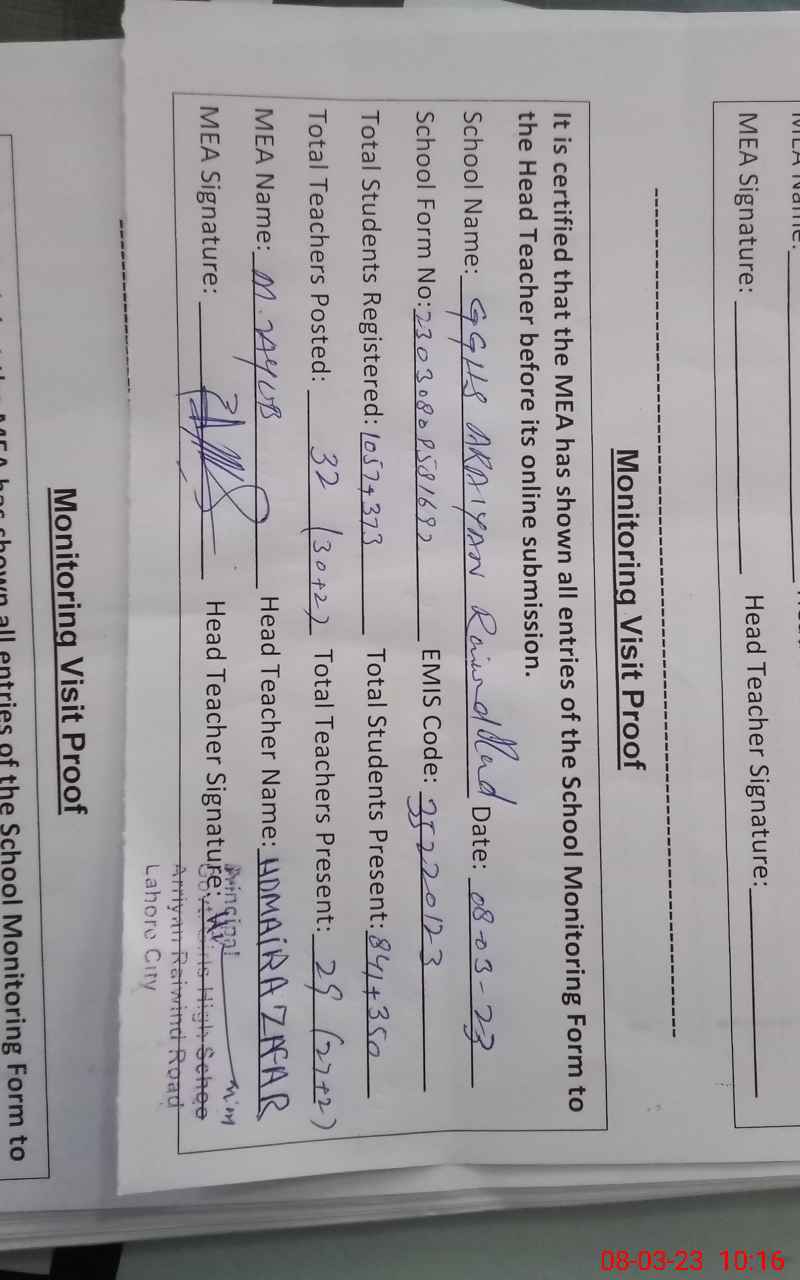 MEA Name:
MEA Signature: Head Teacher Signature:
Monitoring Visit Proof
It is certified that the MEA has shown all entries of the School Monitoring Form to
the Head Teacher before its online submission.
School Name: GGHS ARAIYAN Raiwnd Road Date: 08-03-23
School Form No: EMIS Code: 35220123
Total Students Registered: 1057+373 Total Students Present: 841+350
Total Teachers Posted: 32 (30+2) Total Teachers Present: 29 (27+2)
MEA Name: M. ZAYUB Head Teacher Name: HUMAIRA ZAFAR
MEA Signature: Head Teacher Signature:
Principal
Govt. Girls High Schoo
Arriyan Raiwind Road
Lahore City
Monitoring Visit Proof
MEA has shown all entries of the School Monitoring Form to
08-03-23 10:16